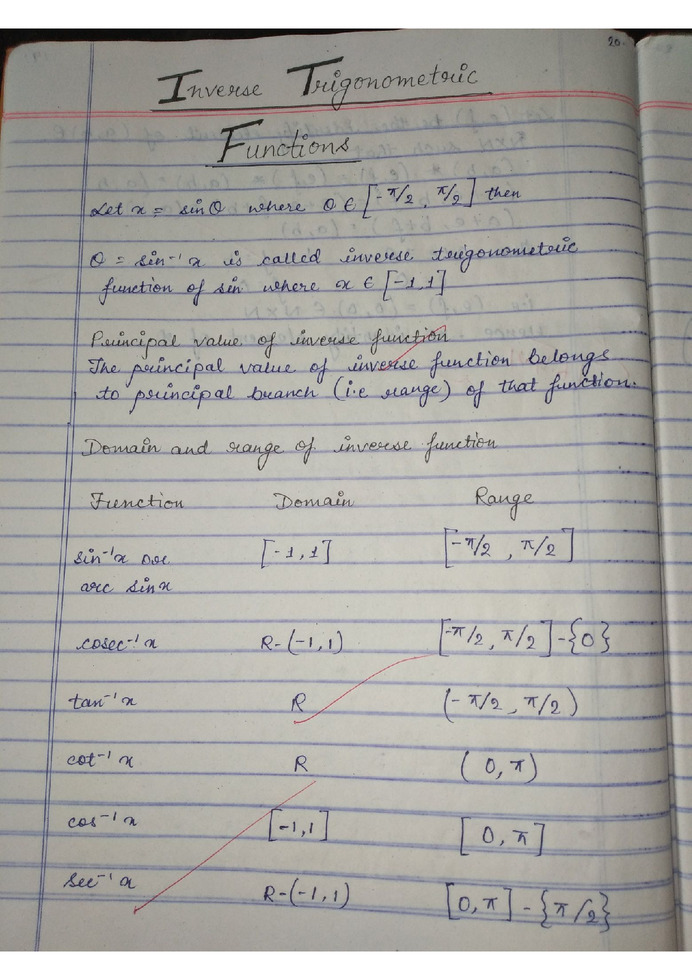 20.
Inverse Trigonometric
Functions
Let x = sinθ where θ ∈ [-π/2, π/2] then
θ = sin⁻¹x is called inverse trigonometric
function of sin where x ∈ [-1,1]
Principal value of inverse function
The principal value of inverse function belongs
to principal branch (i.e range) of that function.
Domain and range of inverse function
Function Domain Range
sin⁻¹x or [-1,1] [-π/2, π/2]
arc sinx
cosec⁻¹x R-(-1,1) [-π/2, π/2]-{0}
tan⁻¹x R (-π/2, π/2)
cot⁻¹x R (0,π)
cos⁻¹x [-1,1] [0,π]
sec⁻¹x R-(-1,1) [0,π]-{π/2}